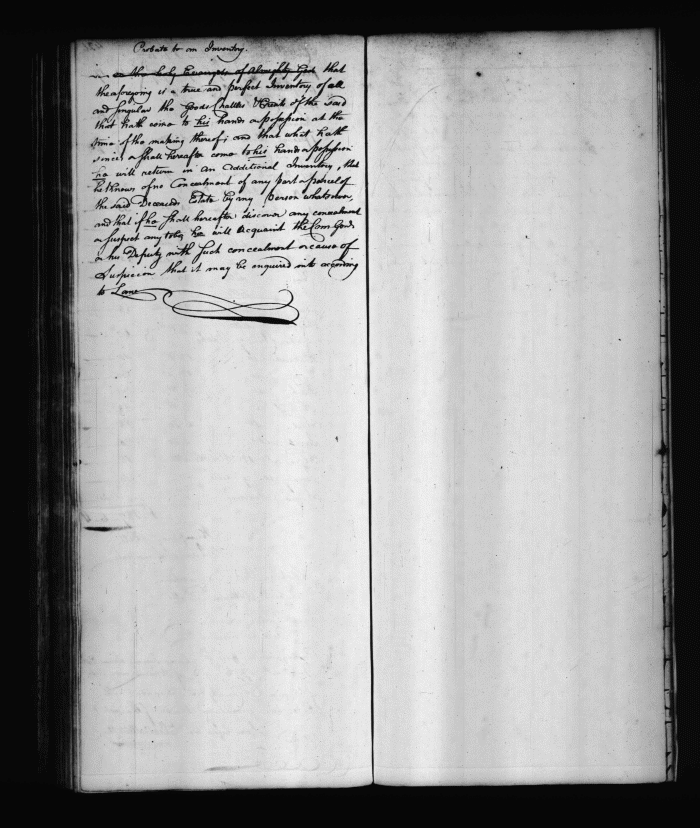 Probate to an Inventory.
on the Holy Evangels of Almighty God that
the aforegoing is a true and perfect Inventory of all
and singular the Goods Chattles & Credits of the said
that hath come to his hands or possession at the
time of the making thereof; and that what hath
since or shall hereafter come to his hands or possession
he will return in an additional Inventory, that
he knows of no Concealment of any part or parcel of
the said Deceaseds Estate by any Person whatsoever,
and that if he shall hereafter discover any concealment
or suspect any to be, he will acquaint the Com Genl.
or his Deputy with such concealment or cause of
Suspicion that it may be enquired into according
to Law